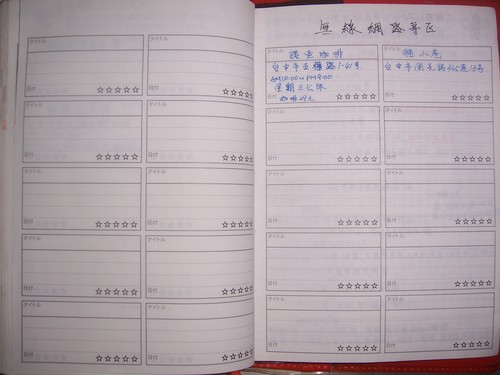 タイトル
タイトル
日付 ☆☆☆☆☆
日付 ☆☆☆☆☆
タイトル
タイトル
日付 ☆☆☆☆☆
日付 ☆☆☆☆☆
タイトル
タイトル
日付 ☆☆☆☆☆
日付 ☆☆☆☆☆
タイトル
タイトル
日付 ☆☆☆☆☆
日付 ☆☆☆☆☆
タイトル
タイトル
日付 ☆☆☆☆☆
日付 ☆☆☆☆☆
無線網路專區
タイトル
咖啡
台中市
AM10:00~PM9:00
星期三公休
咖啡
日付 ☆☆☆☆☆
タイトル
小巷
台中市
日付 ☆☆☆☆☆
タイトル
タイトル
日付 ☆☆☆☆☆
日付 ☆☆☆☆☆
タイトル
タイトル
日付 ☆☆☆☆☆
日付 ☆☆☆☆☆
タイトル
タイトル
日付 ☆☆☆☆☆
日付 ☆☆☆☆☆
タイトル
タイトル
日付 ☆☆☆☆☆
日付 ☆☆☆☆☆